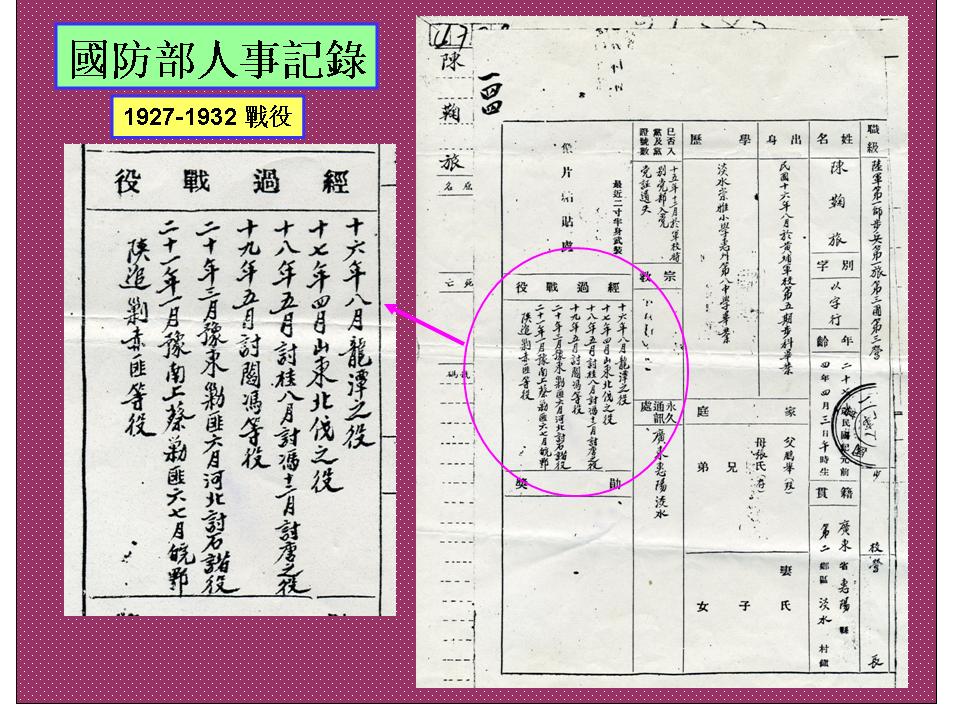 國防部人事記錄
1927-1932 戰役
經過戰役
十六年八月龍潭之役
十七年四月山東北伐之役
十八年五月討桂八月討馮十二月討唐之役
十九年五月討閻馮等役
二十年三月豫東剿匪六月河北討石諸役
二十一年一月豫南上蔡剿匪六七月皖鄂
陝追剿赤匪等役
職級
陸軍第一師步兵第一旅第三團第三營
少校營長
姓名
陳鞠旅
別字
以字行
年齡
民國紀元前
四年四月三日午時生
籍貫
廣東省惠陽縣
第二鄉區淡水村鎮
出身
民國十六年八月於黃埔軍校第五期步科畢業
學歷
淡水崇雅小學惠州第八中學畢業
家庭
父鵬舉(歿)
母張氏(存)
兄弟
妻氏
子女
已否入黨及黨證號數
十五年十二月於軍校特別黨部入黨
黨証遺失
宗教
永久通訊處
廣東惠陽淡水
最近二寸半身武裝
像片粘貼處
經過戰役
十六年八月龍潭之役
十七年四月山東北伐之役
十八年五月討桂八月討馮十二月討唐之役
十九年五月討閻馮等役
二十年三月豫東剿匪六月河北討石諸役
二十一年一月豫南上蔡剿匪六七月皖鄂
陝追剿赤匪等役
勛獎
陳鞠旅
一四四